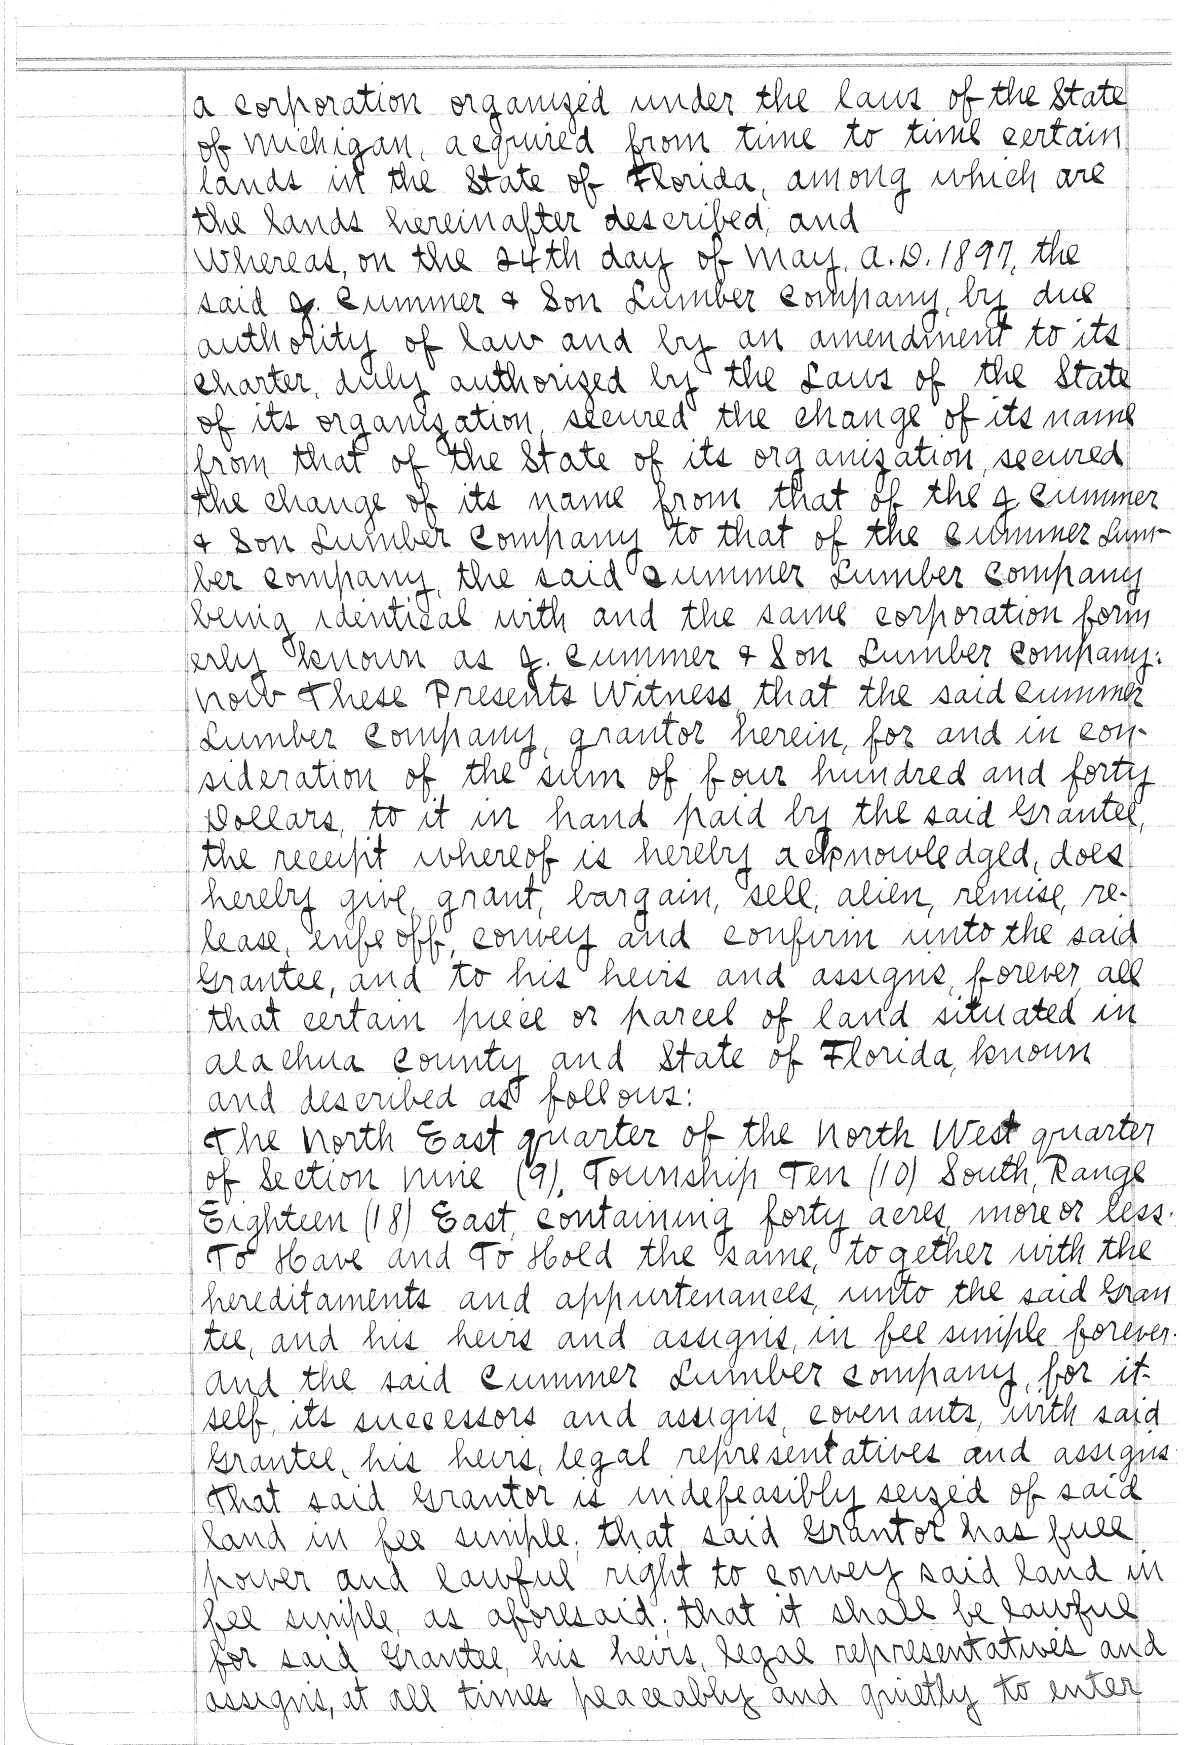 a corporation organized under the laws of the State
of Michigan, acquired from time to time certain
lands in the State of Florida, among which are
the lands hereinafter described, and
Whereas, on the 24th day of May, A.D. 1897, the
said J. Cummer & Son Lumber Company, by due
authority of law and by an amendment to its
charter, duly authorized by the Laws of the State
of its organization, secured the change of its name
from that of the State of its organization, secured
the change of its name from that of the J Cummer
& Son Lumber Company to that of the Cummer Lum-
ber Company, the said Cummer Lumber Company
being identical with and the same corporation form
erly known as J. Cummer & Son Lumber Company:
Now These Presents Witness, that the said Cummer
Lumber Company, grantor herein, for and in con-
sideration of the sum of four hundred and forty
Dollars, to it in hand paid by the said Grantee,
the receipt whereof is hereby acknowledged, does
hereby give, grant, bargain, sell, alien, remise, re-
lease, enfeoff, convey and confirm unto the said
Grantee, and to his heirs and assigns, forever, all
that certain piece or parcel of land situated in
Alachua County and State of Florida, known
and described as follows:
The North East quarter of the North West quarter
of Section nine (9), Township Ten (10) South, Range
Eighteen (18) East, containing forty acres, more or less.
To Have and To Hold the same, together with the
hereditaments and appurtenances, unto the said Gran
tee, and his heirs and assigns, in fee simple forever.
And the said Cummer Lumber Company, for it-
self, its successors and assigns, covenants, with said
Grantee, his heirs, legal representatives and assigns
That said Grantor is indefeasibly seized of said
land in fee simple; that said Grantor has full
power and lawful right to convey said land in
fee simple, as aforesaid; that it shall be lawful
for said Grantee, his heirs, legal representatives and
assigns, at all times peaceably and quietly to enter